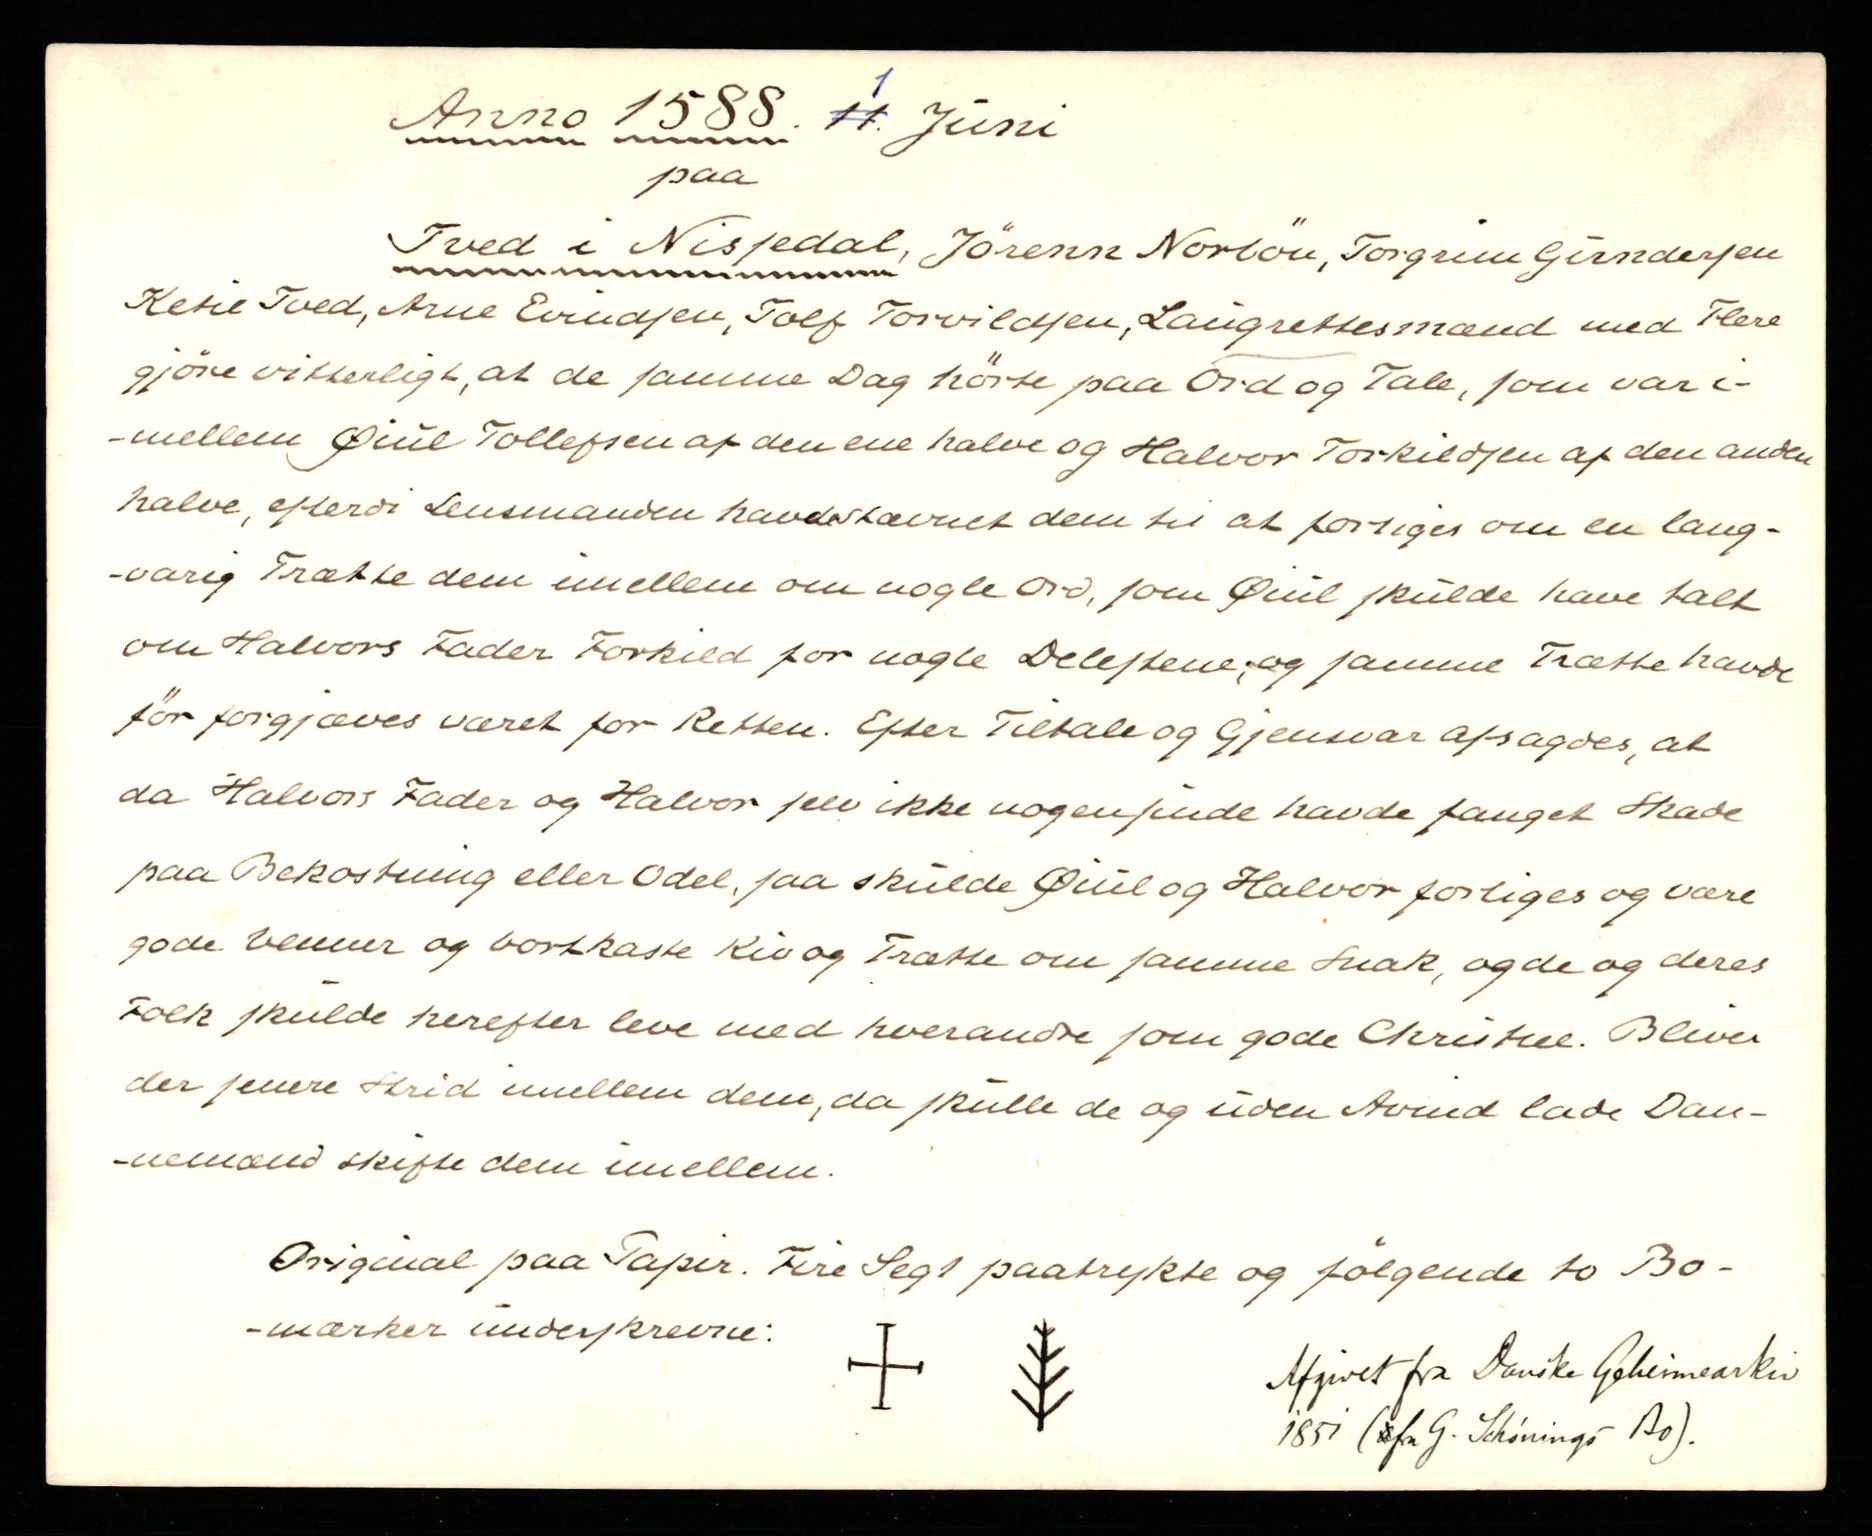 Anno 1588. 1 Juni
paa
Tved i Nissedal, Jörenn Norbön, Torgrim Gundersen
Ketil Tved, Arne Evindsen, Tolf Torvildsen, Laugrettesmænd med Flere
gjöre vitterligt, at de samme Dag hörte paa Ord og Tale, som var i-
-mellem Øiul Tollefsen af den ene halve og Halvor Torkildsen af den anden
halve, efterdi Lensmanden havde stævnet dem til at forliges om en lang-
-varig Trætte dem imellem om nogle Ord, som Øiul skulde have talt
om Halvors Fader Torkild for nogle Delestene, og samme Trætte havde
för forgjæves været for Retten. Efter Tiltale og Gjensvar afsagdes, at
da Halvors Fader og Halvor selv ikke nogensinde havde fanget Skade
paa Bekostning eller Odel, saa skulde Øiul og Halvor forliges og være
gode Venner og bortkaste Kiv og Trætte om samme Snak, og de og deres
Folk skulde herefter leve med hverandre som gode Christne. Bliver
der senere Strid imellem dem, da skulle de og uden Avind lade Dan-
-nemænd skifte dem imellem.
Original paa Papir. Fire Segl paatrykte og fölgende to Bo-
-mærker underskrevne:
Afgivet fra Danske Geheimearkiv
1851 (fra G. Schönings Bo).